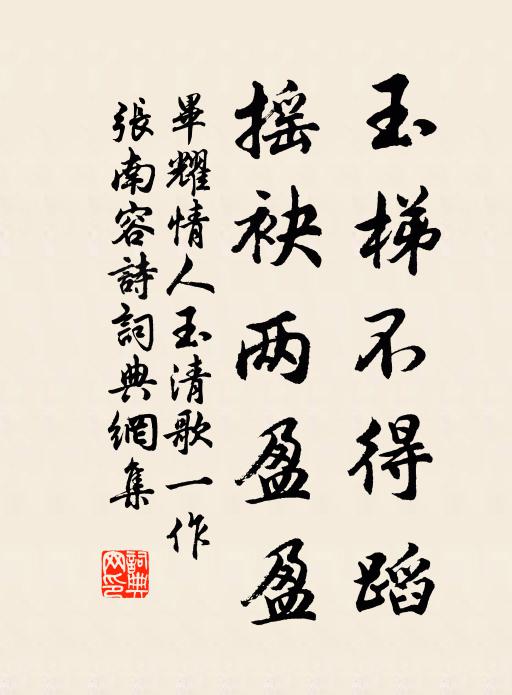 玉梯不得蹈
摇袂两盈盈
畢耀情人玉清歌一作
張南容詩詞典網集
詞典网印